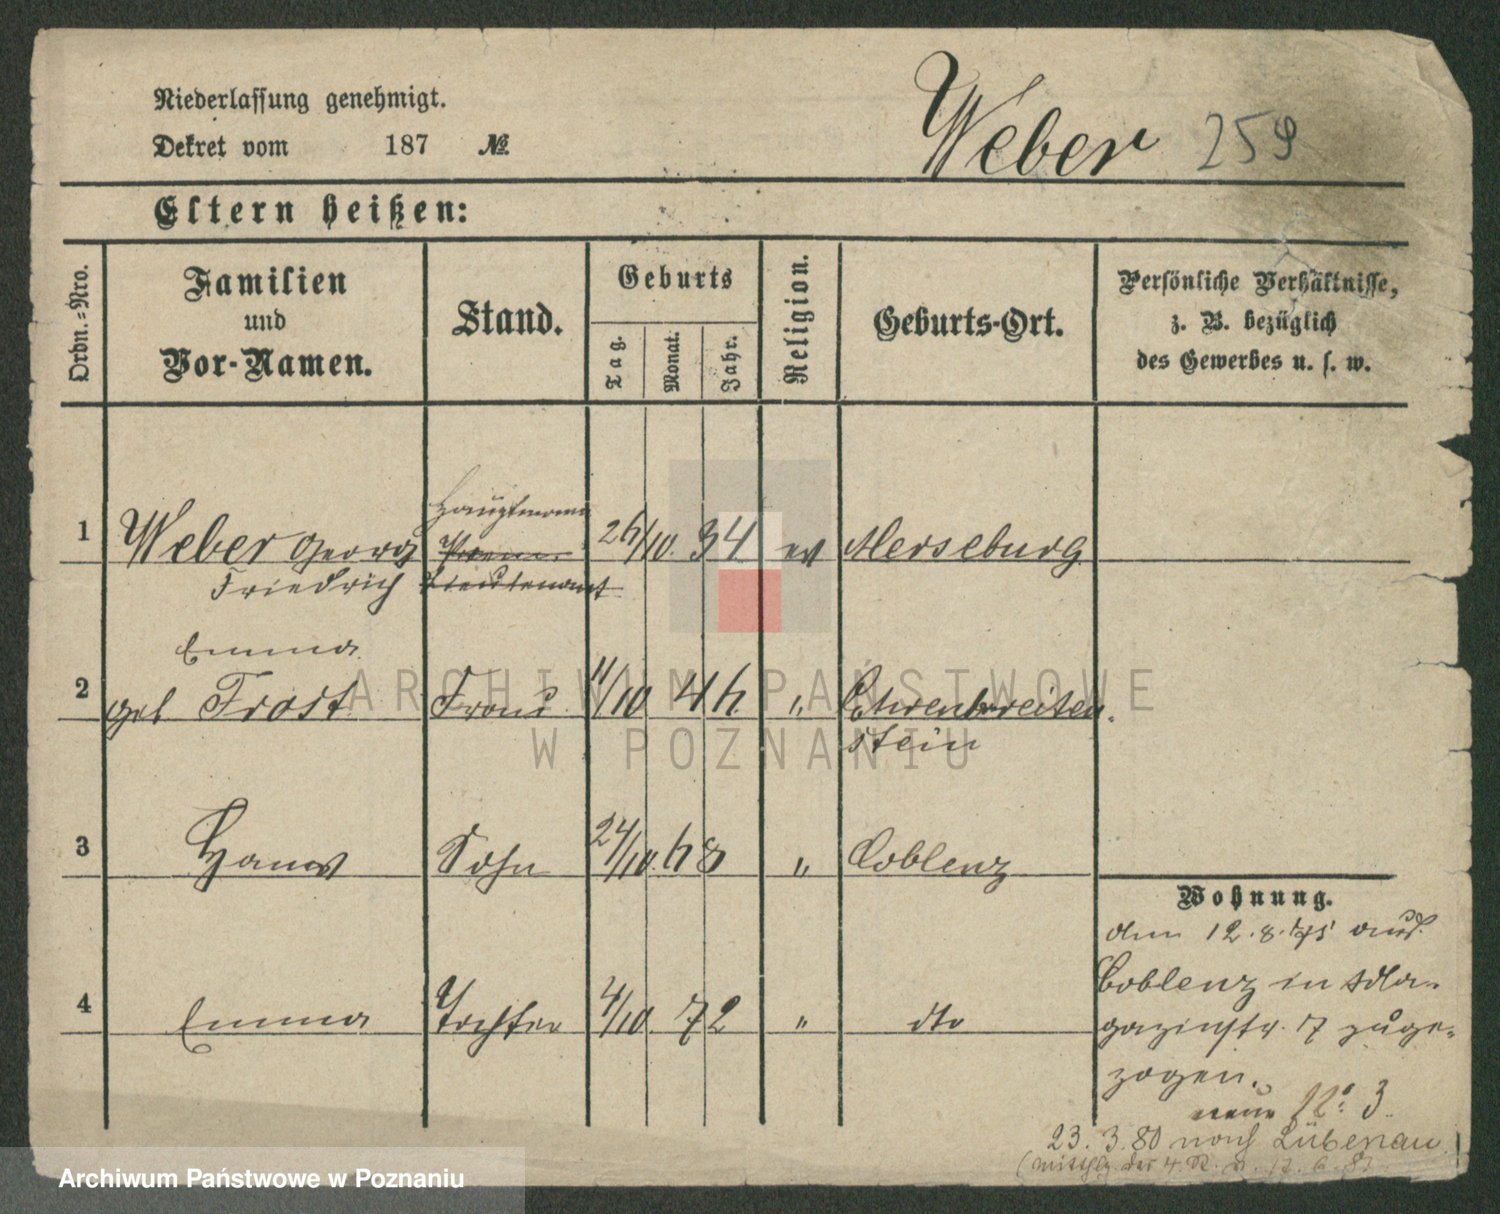 Niederlassung genehmigt.
Dekret vom 187 №
Weber 259
Eltern heißen:
Ordn.-Nro.
Familien
und
Vor-Namen.
Stand.
Geburts
Tag.
Monat.
Jahr.
Religion.
Geburts-Ort.
Persönliche Verhältnisse,
z. B. bezüglich
des Gewerbes u. s. w.
Hauptmann
1 Weber Georg Prem. 26/10. 34 ev Merseburg
Friedrich Lieutenant
Emma
2 geb Frost Frau 11/10 46 " Ehrenbreiten-
stein
3 Hans Sohn 24/10. 68 " Coblenz
4 Emma Tochter 4/10 72 " dto
Wohnung.
den 12.8.75 aus
Coblenz in Ma-
gazinstr. 7 zuge-
zogen.
neue No. 3
23.3.80 nach Lübenau
ARCHIWUM PAŃSTWOWE
W POZNANIU
Archiwum Państwowe w Poznaniu